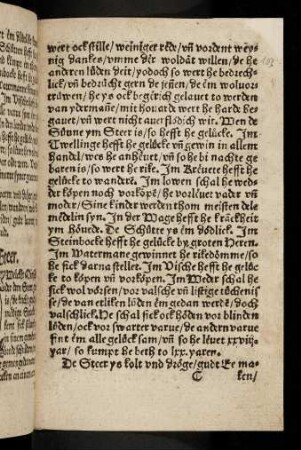 wert ock stille/ weiniger rede/ vñ vordent wey-
nig danckes/ vmme der woldat willen/ de he
anderen lüden deit/ yodoch so wert he bedrech-
lick/ vñ bedrücht gern de jenen/ de em woluor-
trüwen/ he ys ock begerich gelauet to werden
van ydermane/ mit houarde wert he hardt be-
gauet/ vñ wert nicht auerflödich wir. Wen de
Sünne ym Steer is/ so hefft he gelücke. Im
Twellinge hefft he gelücke vñ gewin in allem
handel/ wes he anheuet/ vñ so he bi nachte ge-
baren is/ so wert he rike. Im Kreuete hefft he
gelücke to wanderē. Im lowen schal he weds
der köpen noch vorköpē/ he vorlüet vader vñ
moder/ Sine kinder werden thom meisten dele
medelin syn. In der Wage hefft he kranckheit
ym Höuede. De Schütte ys em dödlick. Im
Steinbocke hefft he gelücke by groten Heren.
Im Watermane gewinnet he rikedömme/ so
he sick darna stellet. Im Vische hefft he gelüc
ke to köpen vñ vorköpen. Im Weder schal he
sick wol vorseen/ vor valsche vñ listige tüchenis
se/ de van etliken lüden em gedan werdē/ doch
valschlick. He schal sick ock höden vor blinden
lüden/ ock vor swarter varue/ de andern varue
sint em alle gelücksam/ vñ so he leuet xxviij.
yar/ so kumpt he beth to lxx. yaren.
De Steer ys kolt vnd dröge/ gudt Ee ma-
C ken/